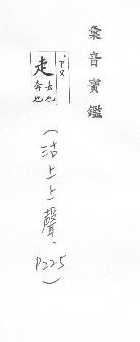 彙音寶鑑
走
去也
奔也
(沽上上聲、P225)